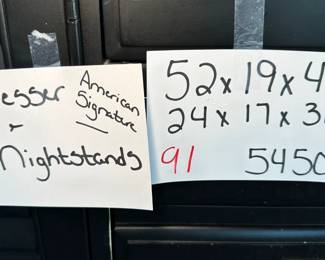 esser
American
Signature
+
Nightstands
52 x 19 x 4
24 x 17 x 3
91 5450